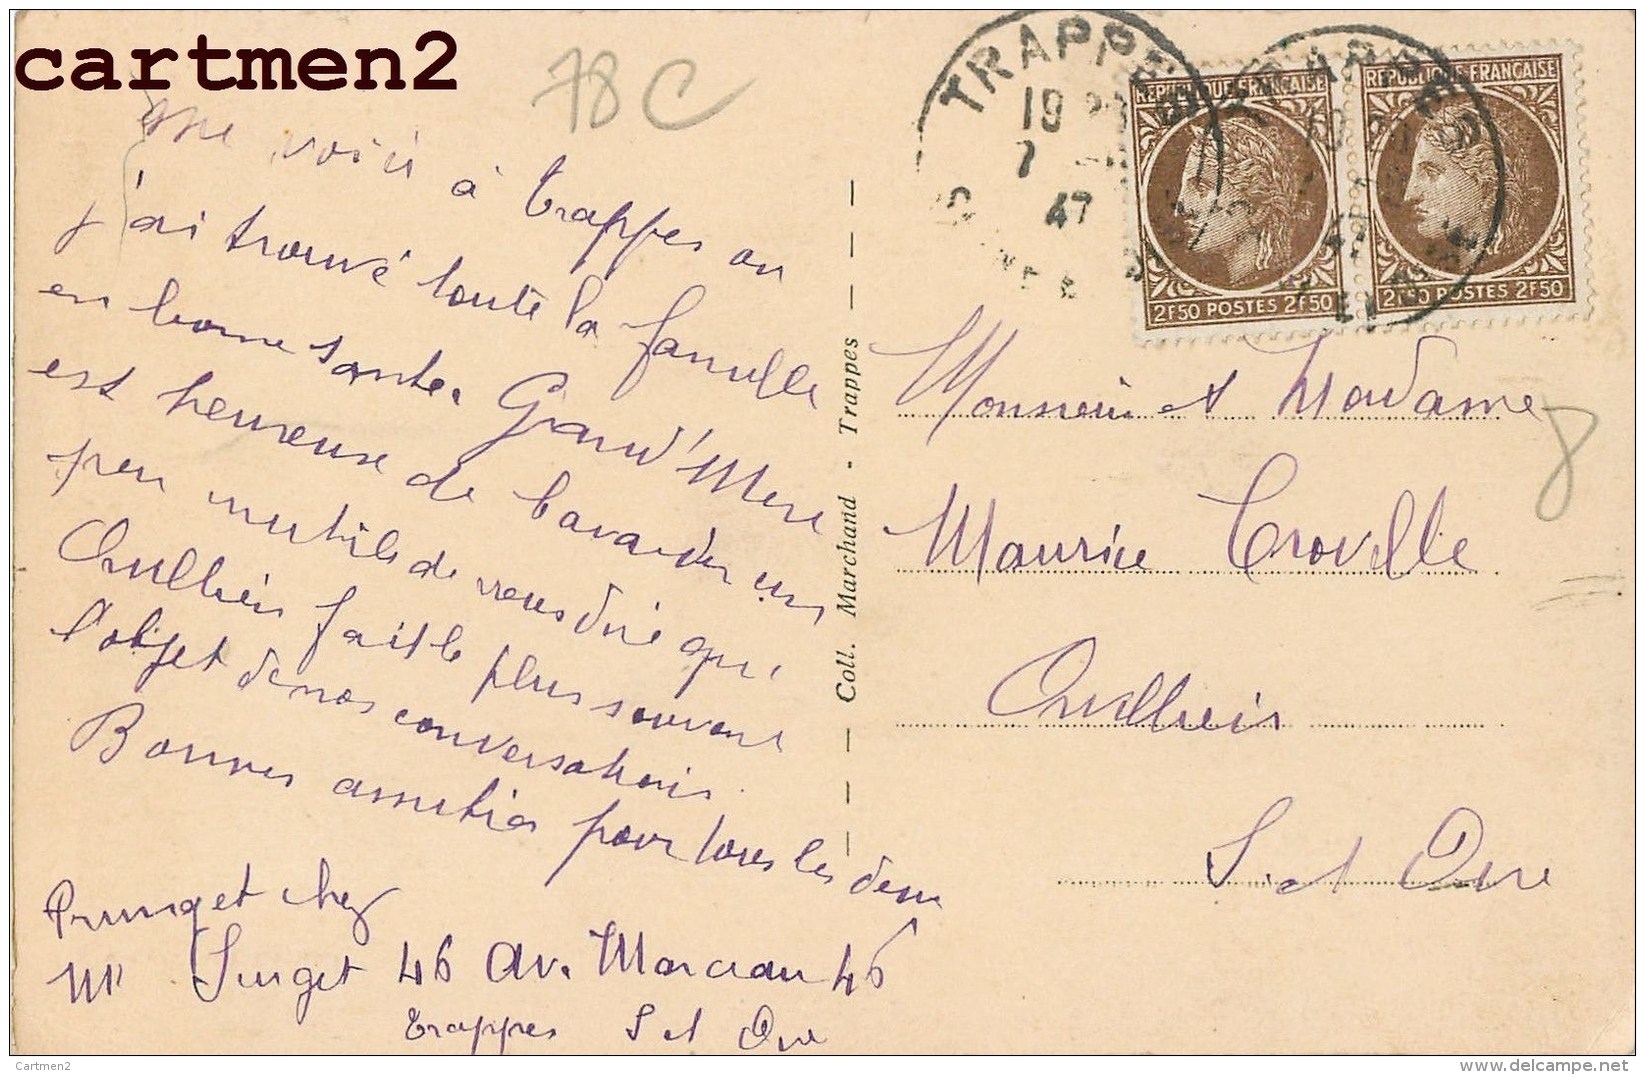 cartmen2
78 C
me voici à Trappes ou
j'ai trouvé toute la famille
en bonne santé. Grand'Mère
est heureuse de bavarder un
peu inutile de vous dire que
Orulhier fait le plus souvent
l'objet de nos conversations.
Bonnes amitiés pour tous les deux
chez
Mr Surget 46 Av. Marceau 46
Trappes S et Oise
Coll. Marchand - Trappes
TRAPPES
19
7
47
TRAPPES
47
REPUBLIQUE FRANÇAISE
2F50 POSTES 2F50
REPUBLIQUE FRANÇAISE
2F50 POSTES 2F50
Monsieur et Madame
Maurice
S. et Oise
8
Cartmen2
delcampe.net